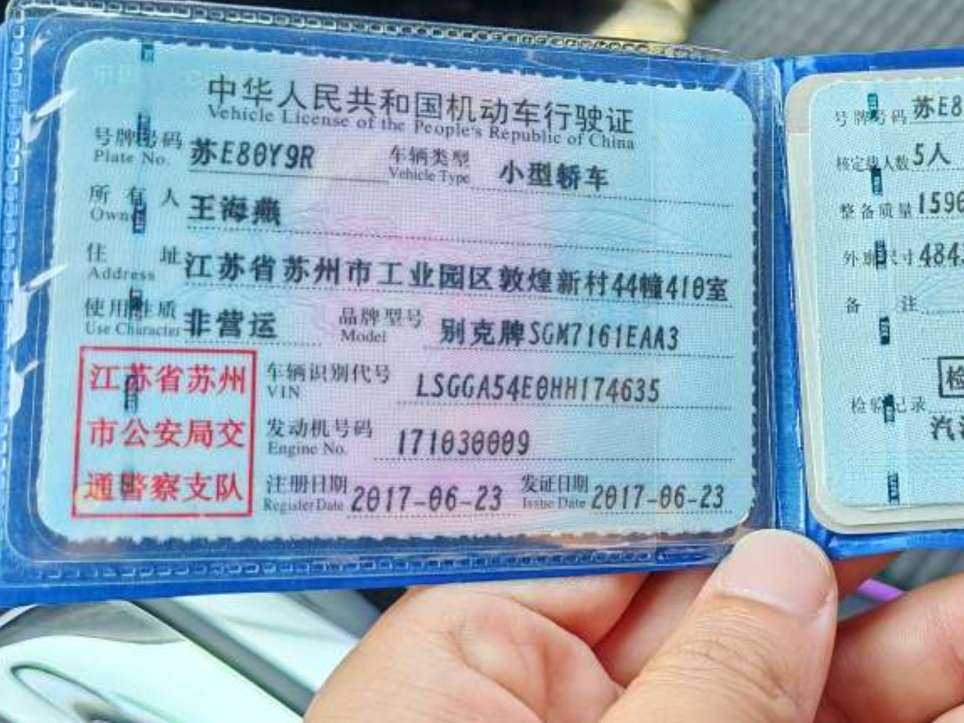 中华人民共和国机动车行驶证
Vehicle License of the People's Republic of China
号牌号码 苏E80Y9R 车辆类型 小型轿车
Plate No. Vehicle Type
所有人 王海燕
Owner
住址 江苏省苏州市工业园区敦煌新村44幢410室
Address
使用性质 非营运 品牌型号 别克牌SGM7161EAA3
Use Character Model
江苏省苏州
市公安局交
通警察支队
车辆识别代号 LSGGA54E0HH174635
VIN
发动机号码 171030009
Engine No.
注册日期 2017-06-23 发证日期 2017-06-23
Register Date Issue Date
号牌号码 苏E8
核定载人数 5人
整备质量 159
外廓尺寸 484
备注
检验记录
检
汽